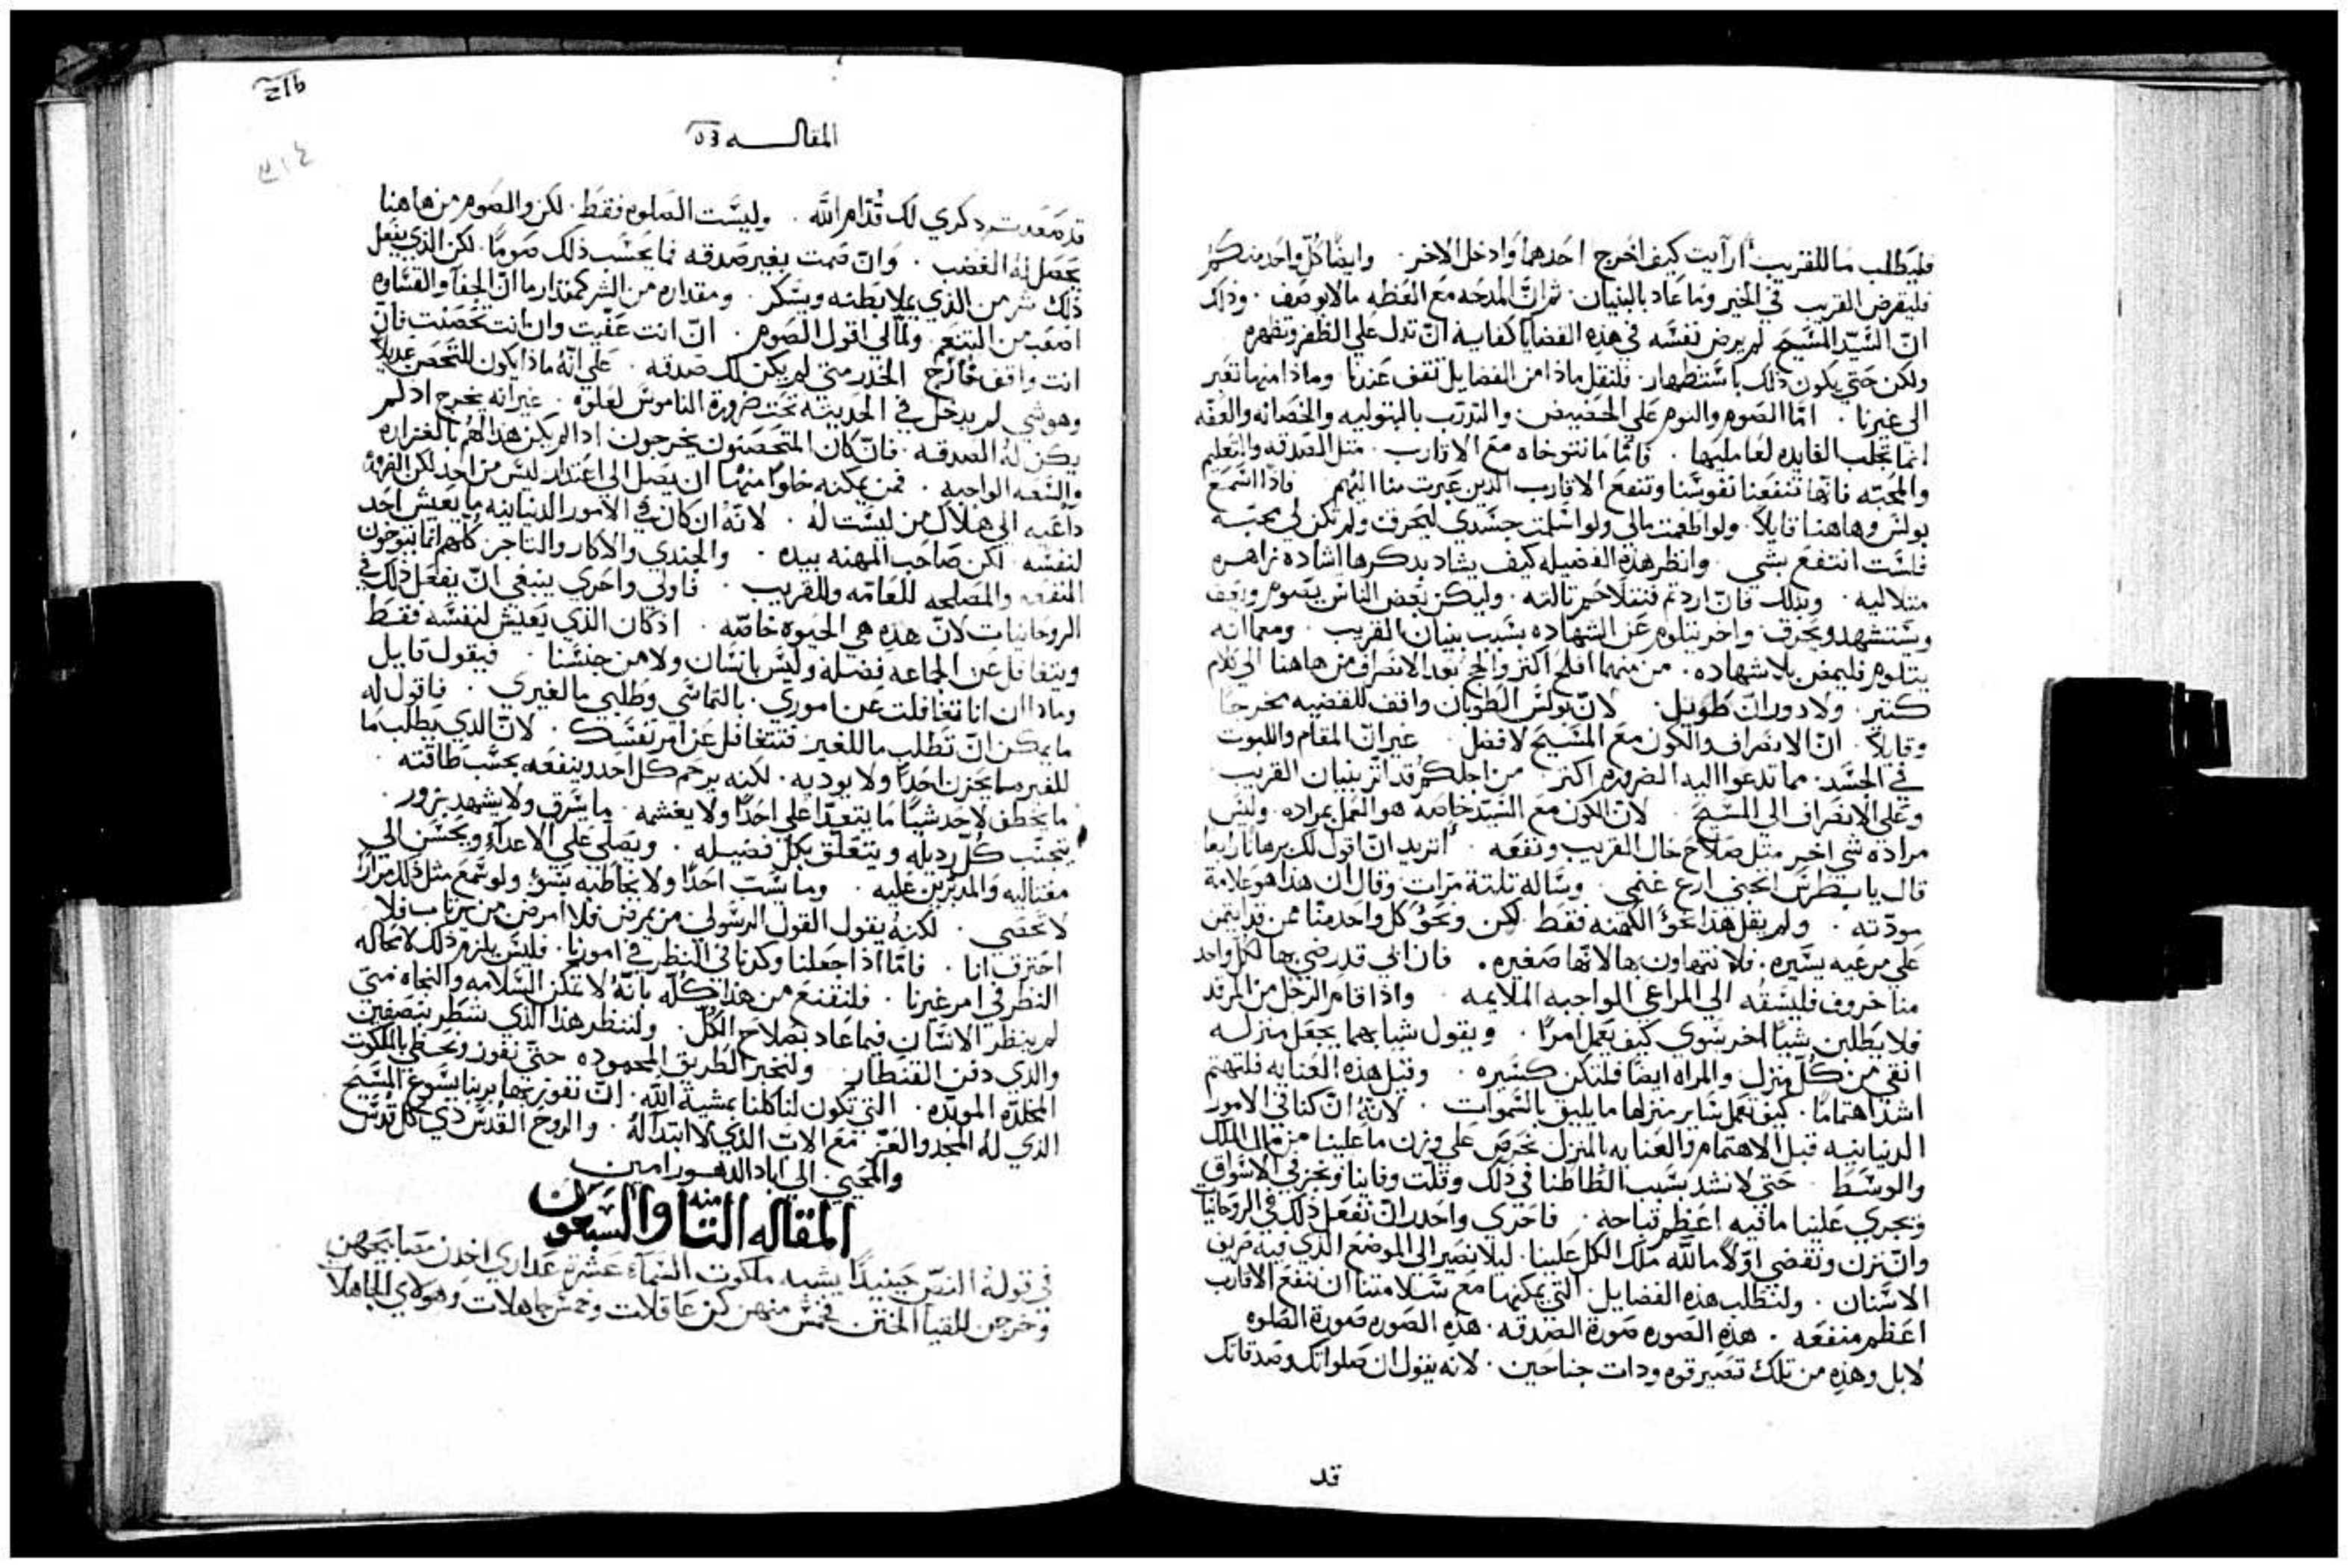 فليطلب ما للقريب أرأيت كيف اخرج احدهما وادخل الاخر . وايضًا كلّ واحد منكم
فليقرض القريب في الخير وما عاد بالبنيان . ثم انّ المدحه مع العظه ما لا يوصف . وذلك
انّ السّيّد المسّيح لم يرض نفسّه في هذه القضايا كفايه انّ تدل علي الظفر وتظهره
ولكن حتي يكون ذلك باسّتظهار . فلنقل ماذا من الفضايل تقف عندنا . وماذا منها تعبر
الي غيرنا . امّا الصوم والنوم علي الحضيض . والتدرّب بالبتوليه والحصانه والعفّه
انما تجلب الفايده لعامليها . فامّا ما نتوخاه مع الاقارب . مثل الصدقه والتعليم
والمحبّه فانّها تنفعنا نفوسّنا وتنفع الاقارب الذين عبرت منا اليهم . فاذًا اسّمع
بولسّ وهاهنا قايلاً . ولو اطعمت مالي ولو اسّلمت جسّدي ليحرق ولم تكن لي محبّه
فلسّت انتفع بشي . وانظر هذه الفضيله كيف يشاد بدكرها اشاده زاهره
متلاليه . وبذلك فانّ اردتم فننقل خبر ثالثه . وليكن بعض الناسّ يصوم ويعف
ويسّتشهد ويحرق . واخر يتلوم عن الشهاده بسّبب بنيان القريب . ومعما انه
يتلوم فليمض بلا شهاده . من منهما افلح اكثر وانجح بعد الانصراف من هاهنا الي كلام
كثير . ولا دوران طويل . لانّ بولسّ الطوبان واقف للقضيه مخرجًا
وقايلاً . انّ الانصراف والكون مع المسّيح لافضل . غير انّ المقام واللبوت
في الجسّد . مما تدعوا اليه الضروره اكتر من اجلكم قد اثر بنيان القريب
وعلي الانصراف الي المسّيح . لانّ الكون مع السّيّد خاصه هو العمل بمراده . وليسّ
مراده شي اخر مثل صلاح حال القريب ونفعه . أتريد انّ اقول لك برهانًا رابعا
قال يا بطرسّ اتحبني ارع غنمي . وسّاله تلتة مرّات وقال ان هذا هو علامة
مودّته . ولم يقل هذا نحوَ الكهنه فقط لكن ونحوَ كل واحد منّا ممن قد ايتمن
علي مرعيه يسّيره . فلا نتهاون بها لانّها صغيره . فان ابي قد رضي بها لكل واحد
منا خروف فليسّقه الي المراعي الواجبه الملايمه . واذا قام الرجل من المرقد
فلا يطلبن شيًا اخر سّوي كيف يعمل امرًا . ويقول شيا بهما يجعل منزله
انقي من كلّ منزل والمراه ايضًا فلتكن كسّيره . وقبل هذه العنايه فلتهتم
اشدّ اهتمامًا . كيف تعمل سّاير منزلها ما يليق بالسّموات . لانهِ انّ كنا في الامور
الدنيانيه قبل الاهتمام والعنايه بالمنزل نحرص علي وزن ما علينا من مال الملك
والوسّط . حتي لا نشد بسّبب الطاطنا في ذلك وقلّت وفاينا ونجر في الاسّواق
ويجري علينا ما فيه اعظم قباحه . فاحري واجدر انّ نفعل ذلك في الروحانيات
وانّ نزن ونقضي اوّلاً ما لله ملك الكل علينا . ليلا نصير الي الموضع الذي فيه صريف
الاسّنان . ولنطلب هذه الفضايل . التي يمكنها مع سّلامتنا ان تنفع الاقارب
اعظم منفعه . هذه الصوره صورة الصدقه . هذه الصوره صورة الصلوه
لا بل وهذه من تلك تصير قوه ودات جناحين . لانه يقول ان صلواتك وصدقاتك
قد
المقالـــــه
قد صعدت دكري لك قدّام الله . وليسّت الصلوه فقط . لكن والصوم من هاهنا
يحصل له الغضب . وانّ صمت بغير صدقه فما يحسّب ذلك صومًا . لكن الذي يفعل
ذلك شر من الذي يملا بطنه ويسّكر . ومقداره من الشر كمقدار ما انّ الجفآ والقسّاوه
اصعب من التنعم . ولما لي اقول الصوم . انّ انت عفّيت وان انت تحصنت فانّ
انت واقف خارج الخدر متي لم يكن لك صدقه . علي انّه ماذا يكون للتحصن عديلاً
وهو شي لم يدخل في الحديثه تحت ضرورة الناموسّ لعلوه . غير انه يخرج اذ لم
يكن له الصدقه . فانّ كان المتحصنون يخرجون اذا لم يكن هذا لهم بالغزاره
والسّعه الواجبه . فمن يمكنه خلوًا منها ان يصل الي اعتداد ليسّ من احد لكن الضروره
داعيه الي هلاك من ليسّت له . لانّه ان كان في الامور الدنيانيه ما يعش احد
لنفسّه . لكن صاحب المهنه بيده . والجندي والاكار والتاجر كلهم انما يتوخون
المنفعه والمصلحه للعامّه وللقريب . فاولي واحري ينبغي انّ يفعل ذلك في
الروحانيات لانّ هذه هي الحيوه خاصّه . اذ كان الذي يعيش لنفسّه فقط
ويتغافل عن الجماعه فضله وليسّ بانسّان ولا من جنسّنا . فيقول قايل
وماذا ان انا تغافلت عن اموري . بالتماسّي وطلبي ما لغيري . فاقول له
ما يمكن انّ تطلب ما للغير فتتغافل عن امر نفسّك . لانّ الذي يطلب ما
للغير ما يحزن احدًا ولا يوديه . لكنه يرحم كل احد وينفعه بحسّب طاقته .
ما يخطف لاحد شيًا ما يتعبدّا علي احدًا ولا يغشمه . ما يسّرق ولا يشهد بزور .
يتجنّب كلّ رديله ويتعلّق بكل فضيله . ويصلّي علي الاعدآءِ ويحسّن الي
مغتاليه والمدبّرين عليه . وما يسّبّ احدًا ولا يخاطبه بسّوءِ ولو سّمع مثل ذلك مرارًا
لا تحصي . لكنهُ يقول القول الرسّولي من يمرض فلا امرض من يرتاب فلا
احترق انا . فامّا اذا جعلنا وكدنا في النظر في امورنا . فليسّ يلزم ذلك لا محاله
النظر في امر غيرنا . فلنقنع من هذا كلّه بانّه لا تمكن السّلامه والنجاه متي
لم ينظر الانسّان فيما عاد بصلاح الكُلّ . ولننظر هذا الذي شطر بنصفين
والذي دفن القنطار . ولنتخير الطريق المحموده حتّي نفوز ونحظي بالملكوت
المخلدّه الموبّده . التي تكون لنا كلنا بمشية الله . انّ نفوز بها بربنا يسّوع المسّيح
الذي له المجد والعز مع الاب الذي لا ابتدآ لهُ . والروح القدسّ ذي كل قدسّ
والمحيي الي آباد الدهور امين
المقاله الثامنه والسبعون
في قولهُ النصّ حينيدًا يشبه ملكوت السّمآءِ عشرة عداري اخدن مصابيحهن
وخرجن للقيا الختن . فخمسّ منهن كن عاقلات وخمسّ جاهلات وهولاي الجاهلا